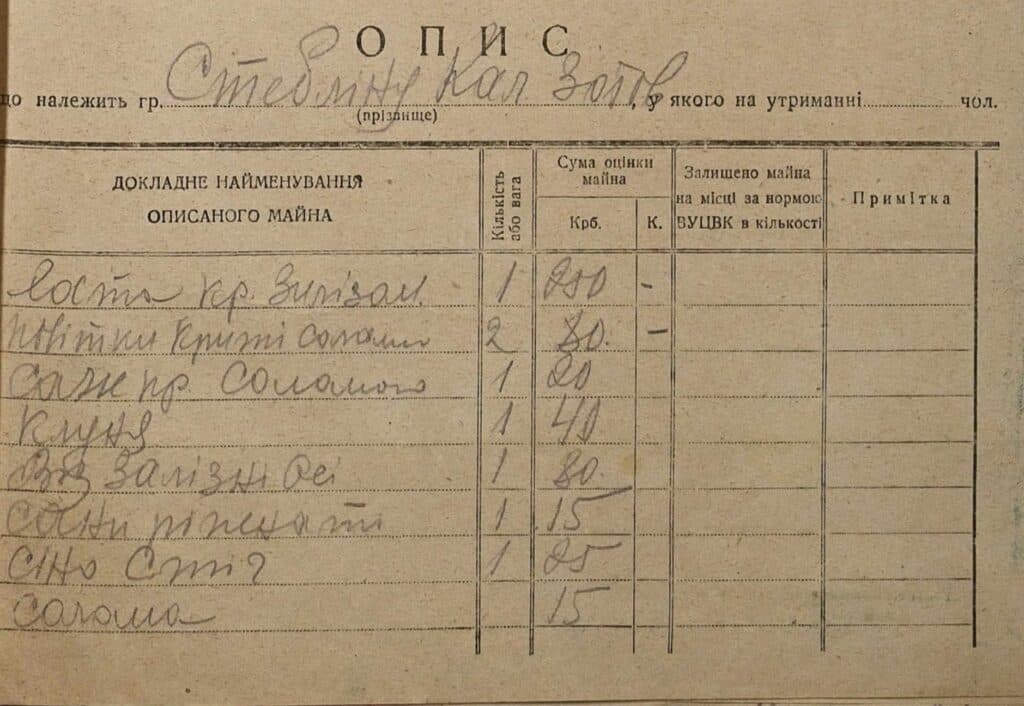 ОПИС
що належить гр. Стебліну Кал Зотов, у якого на утриманні......чол.
(прізвище)
ДОКЛАДНЕ НАЙМЕНУВАННЯ ОПИСАНОГО МАЙНА
Кількість або вага
Сума оцінки майна
Крб.
К.
Залишено майна на місці за нормою ВУЦВК в кількості
Примітка
кр. 1 250 -
Повітки криті солом 2 80. -
Саж кр. Соломою 1 20
Клуня 1 40
Віз Залізні осі 1 80.
Сани 1 15
Сіно Стіг 1 25
Солома 15